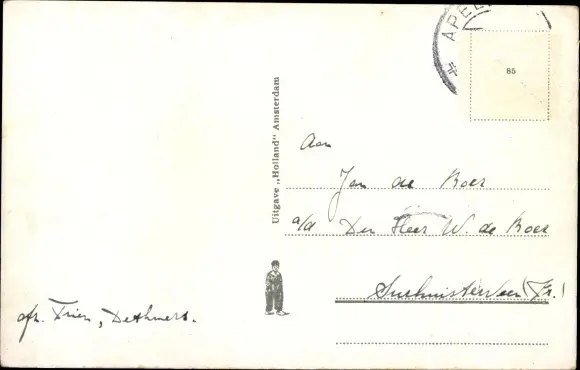 APEL
85
Uitgave „Holland" Amsterdam
Aan
Jan de Boer
a/d Den Heer W. de Boer
Surhuisterveen (Fr.)
afz. Trien, Dethmers.